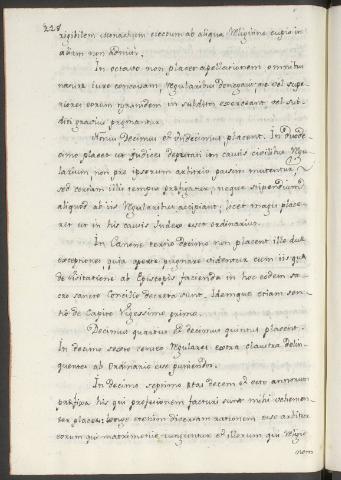 228
rigibilem monachum eiectum ab aliqua Religione cupio in
aliam non admitti.
In octavo non placet appellationem omnibus
natura iure concessam, Regularibus denegari; ne vel supe
riores eorum tyrannidem in subditos exerceant vel sub
diti gravius premantur.
Nonus Decimus et Undecimus, placent. In duode
cimo placet ut Iudices deputati in causis civilibus Regu
larium non pro ipsorum arbitrio passim mutentur,
sed certum illis tempus præfigatur; neque stipendium
aliquod ab iis Regularibus accipiant; licet magis place
ret ut in his causis Iudex esset ordinarius.
In Canone tertio decimo non placent illo duæ
exceptiones, quia aperte pugnare videntur cum iis quæ
de visitatione ab Episcopis facienda in hoc eodem sa
cro sancto Concilio decreta sunt, Idemque etiam sen
tio de Capite Vigessimo primo.
Decimus quartus et decimus quintus placent.
In decimo sexto censeo Regulares extra claustra delin
quentes ab Ordinario esse puniendos.
In Decimo septimo ætas decem et octo annorum
præfixa his qui professionem facturi sunt mihi vehemen
ter placet: longe etenim diversam rationem esse arbitror
eorum qui matrimonio iunguntur et illorum qui Religio
nem